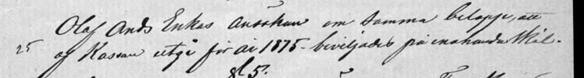 Olaf Ands Enkas ansökan om samma belopp, att
25 af Kassan utgå för år 1875 beviljades på enahanda skäl.
§ 5.